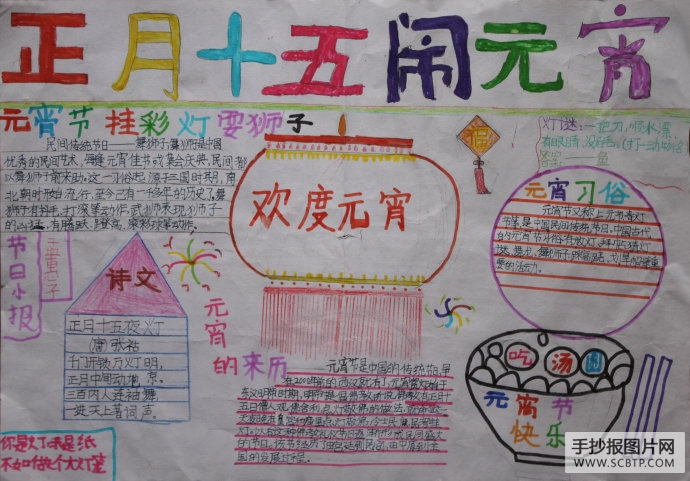 正月十五闹元宵
元宵节挂彩灯耍狮子
民间传统节日——舞狮子舞狮是中国
优秀的民间艺术,每逢元宵佳节或集会庆典,民间都
以舞狮子前来助,这一习俗起源于三国时期,南
北朝时开始流行,至今已有一千多年的历史了,舞
狮子有抬手,打滚等动作,武狮表现狮子
的凶猛,有腾跃、蹬高、滚彩球等动作。
福
灯谜:一把刀,顺水漂,
有眼睛,没眉毛。(打一动物名
答案: 鱼
欢度元宵
元宵习俗
元宵节又称上元节灯
节等,是中国民间传统节日。中国古代
的元宵节习俗有放灯
谜,舞龙,舞狮子踩高跷,划旱船等重
要的活动。
节日小报
诗文
正月十五夜灯
(唐)张祜
千门开锁万灯明,
正月中旬动地京。
三百内人连袖舞,
一进天上著词声。
元宵
的来历
元宵节是中国的传统节日,早
在2000多年前的西汉就有了,元宵赏灯始于
东汉明帝时期,明帝
五日僧人观佛舍利,点灯敬佛的做法,
的节日。该节经历了由宫廷到民间,由中原到全
国的发展过程。
吃汤圆
元宵节
快乐
你是灯来是纸
不如做个大灯笼
手抄报图片网
WWW.SCBTP.COM